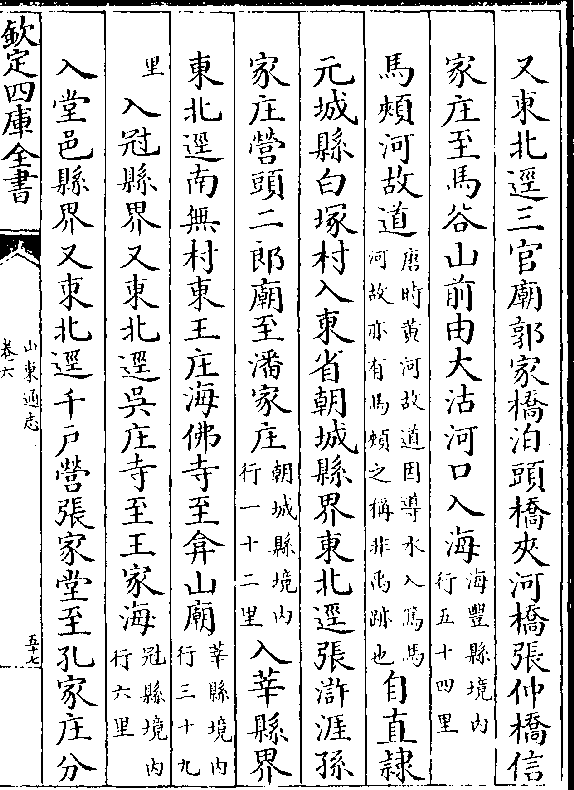 又東北逕三官廟郭家橋泊頭橋夾河橋張仲橋信
家庄至馬谷山前由大沽河口入海海豐縣境内行五十四里
馬頰河故道唐時黄河故道因導水入篤馬河故亦有馬頰之稱非禹跡也自直𨽻
元城縣白塚村入東省朝城縣界東北逕張滸涯孫
家庄營頭二郎廟至潘家庄朝城縣境内行一十二里入莘縣界
東北逕南無村東王庄海佛寺至弇山廟莘縣境内行三十九
里入冠縣界又東北逕吳庄寺至王家海冠縣境内行六里
入堂邑縣界又東北逕千戶營張家堂至孔家庄分
欽定四庫全書
山東通志
卷六
五十七